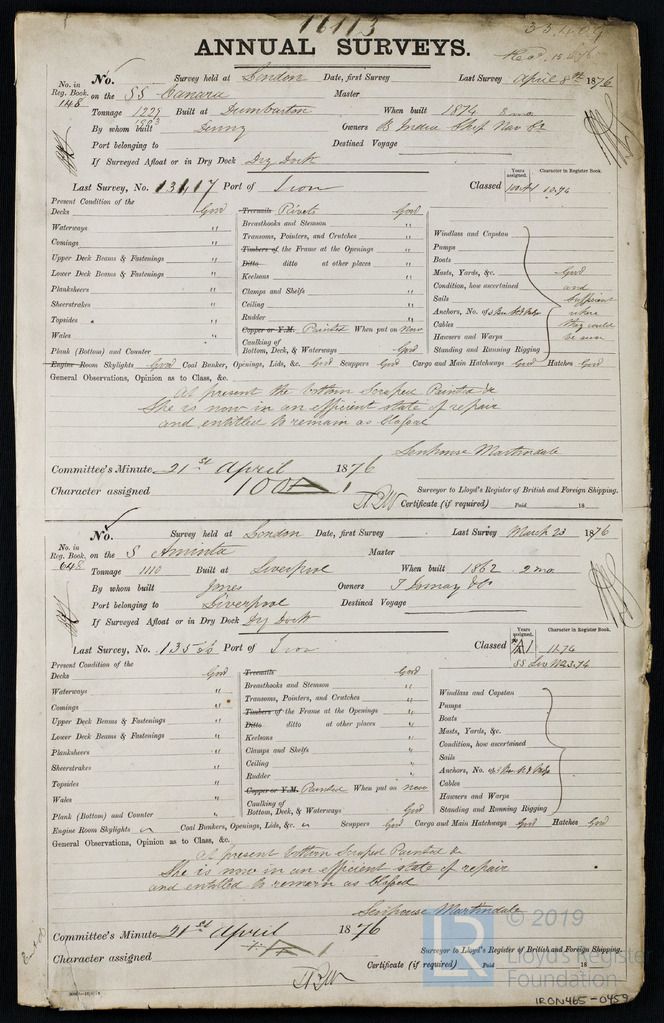 16113
33409
ANNUAL SURVEYS.
No. in Reg. Book. 148
No. Survey held at London Date, first Survey Last Survey April 8th 1876
on the SS Canara Master
Tonnage 1229 1903 Built at Dumbarton When built 1874 8 mo
By whom built Denny Owners B. India Ship Nav Co
Port belonging to Destined Voyage
If Surveyed Afloat or in Dry Dock Dry Dock
Last Survey, No. 13417 Port of Iron Classed
Years assigned. Character in Register Book.
100A1 10.74
Present Condition of the
Decks Good
Waterways "
Comings "
Upper Deck Beams & Fastenings "
Lower Deck Beams & Fastenings "
Planksheers "
Sheerstrakes "
Topsides "
Wales "
Plank (Bottom) and Counter "
Treenails Rivets Good
Breasthooks and Stemson "
Transoms, Pointers, and Crutches "
Timbers of the Frame at the Openings "
Ditto ditto at other places "
Keelsons "
Clamps and Shelfs "
Ceiling "
Rudder "
Copper or Y.M. Painted When put on Now
Caulking of Bottom, Deck, & Waterways Good
Windlass and Capstan
Pumps
Boats
Masts, Yards, &c.
Condition, how ascertained
Sails
Anchors, No. of
Cables
Hawsers and Warps
Standing and Running Rigging
Good
and
Sufficient
where
they could
be seen
Engine Room Skylights Good Coal Bunkers, Openings, Lids, &c. Good Scuppers Good Cargo and Main Hatchways Good Hatches Good
General Observations, Opinion as to Class, &c.
At present the bottom Scraped Painted &c
She is now in an efficient state of repair
and entitled to remain as Classed
Senhouse Martindale
Committee's Minute 21st April 1876
Character assigned 100A1
Surveyor to Lloyd's Register of British and Foreign Shipping.
Certificate (if required) Paid 18
No. in Reg. Book. 648
No. Survey held at London Date, first Survey Last Survey March 23 1876
on the S Aminta Master
Tonnage 1110 Built at Liverpool When built 1862 2 mo
By whom built Jones Owners T Ismay & Co
Port belonging to Liverpool Destined Voyage
If Surveyed Afloat or in Dry Dock Dry Dock
Last Survey, No. Port of Iron Classed
Years assigned. Character in Register Book.
A1 11.74
Present Condition of the
Decks Good
Waterways "
Comings "
Upper Deck Beams & Fastenings "
Lower Deck Beams & Fastenings "
Planksheers "
Sheerstrakes "
Topsides "
Wales "
Plank (Bottom) and Counter "
Treenails Good
Breasthooks and Stemson "
Transoms, Pointers, and Crutches "
Timbers of the Frame at the Openings "
Ditto ditto at other places "
Keelsons "
Clamps and Shelfs "
Ceiling "
Rudder "
Copper or Y.M. Painted When put on now
Caulking of Bottom, Deck, & Waterways Good
Windlass and Capstan
Pumps
Boats
Masts, Yards, &c.
Condition, how ascertained
Sails
Anchors, No. of
Cables
Hawsers and Warps
Standing and Running Rigging
Engine Room Skylights " Coal Bunkers, Openings, Lids, &c. " Scuppers Good Cargo and Main Hatchways Good Hatches Good
General Observations, Opinion as to Class, &c.
At present bottom Scraped Painted &c
She is now in an efficient state of repair
and entitled to remain as Classed
Senhouse Martindale
Committee's Minute 21st April 1876
Character assigned
Surveyor to Lloyd's Register of British and Foreign Shipping.
Certificate (if required) Paid 18
LR © 2019
Lloyd's Register
Foundation
IRON465-0459